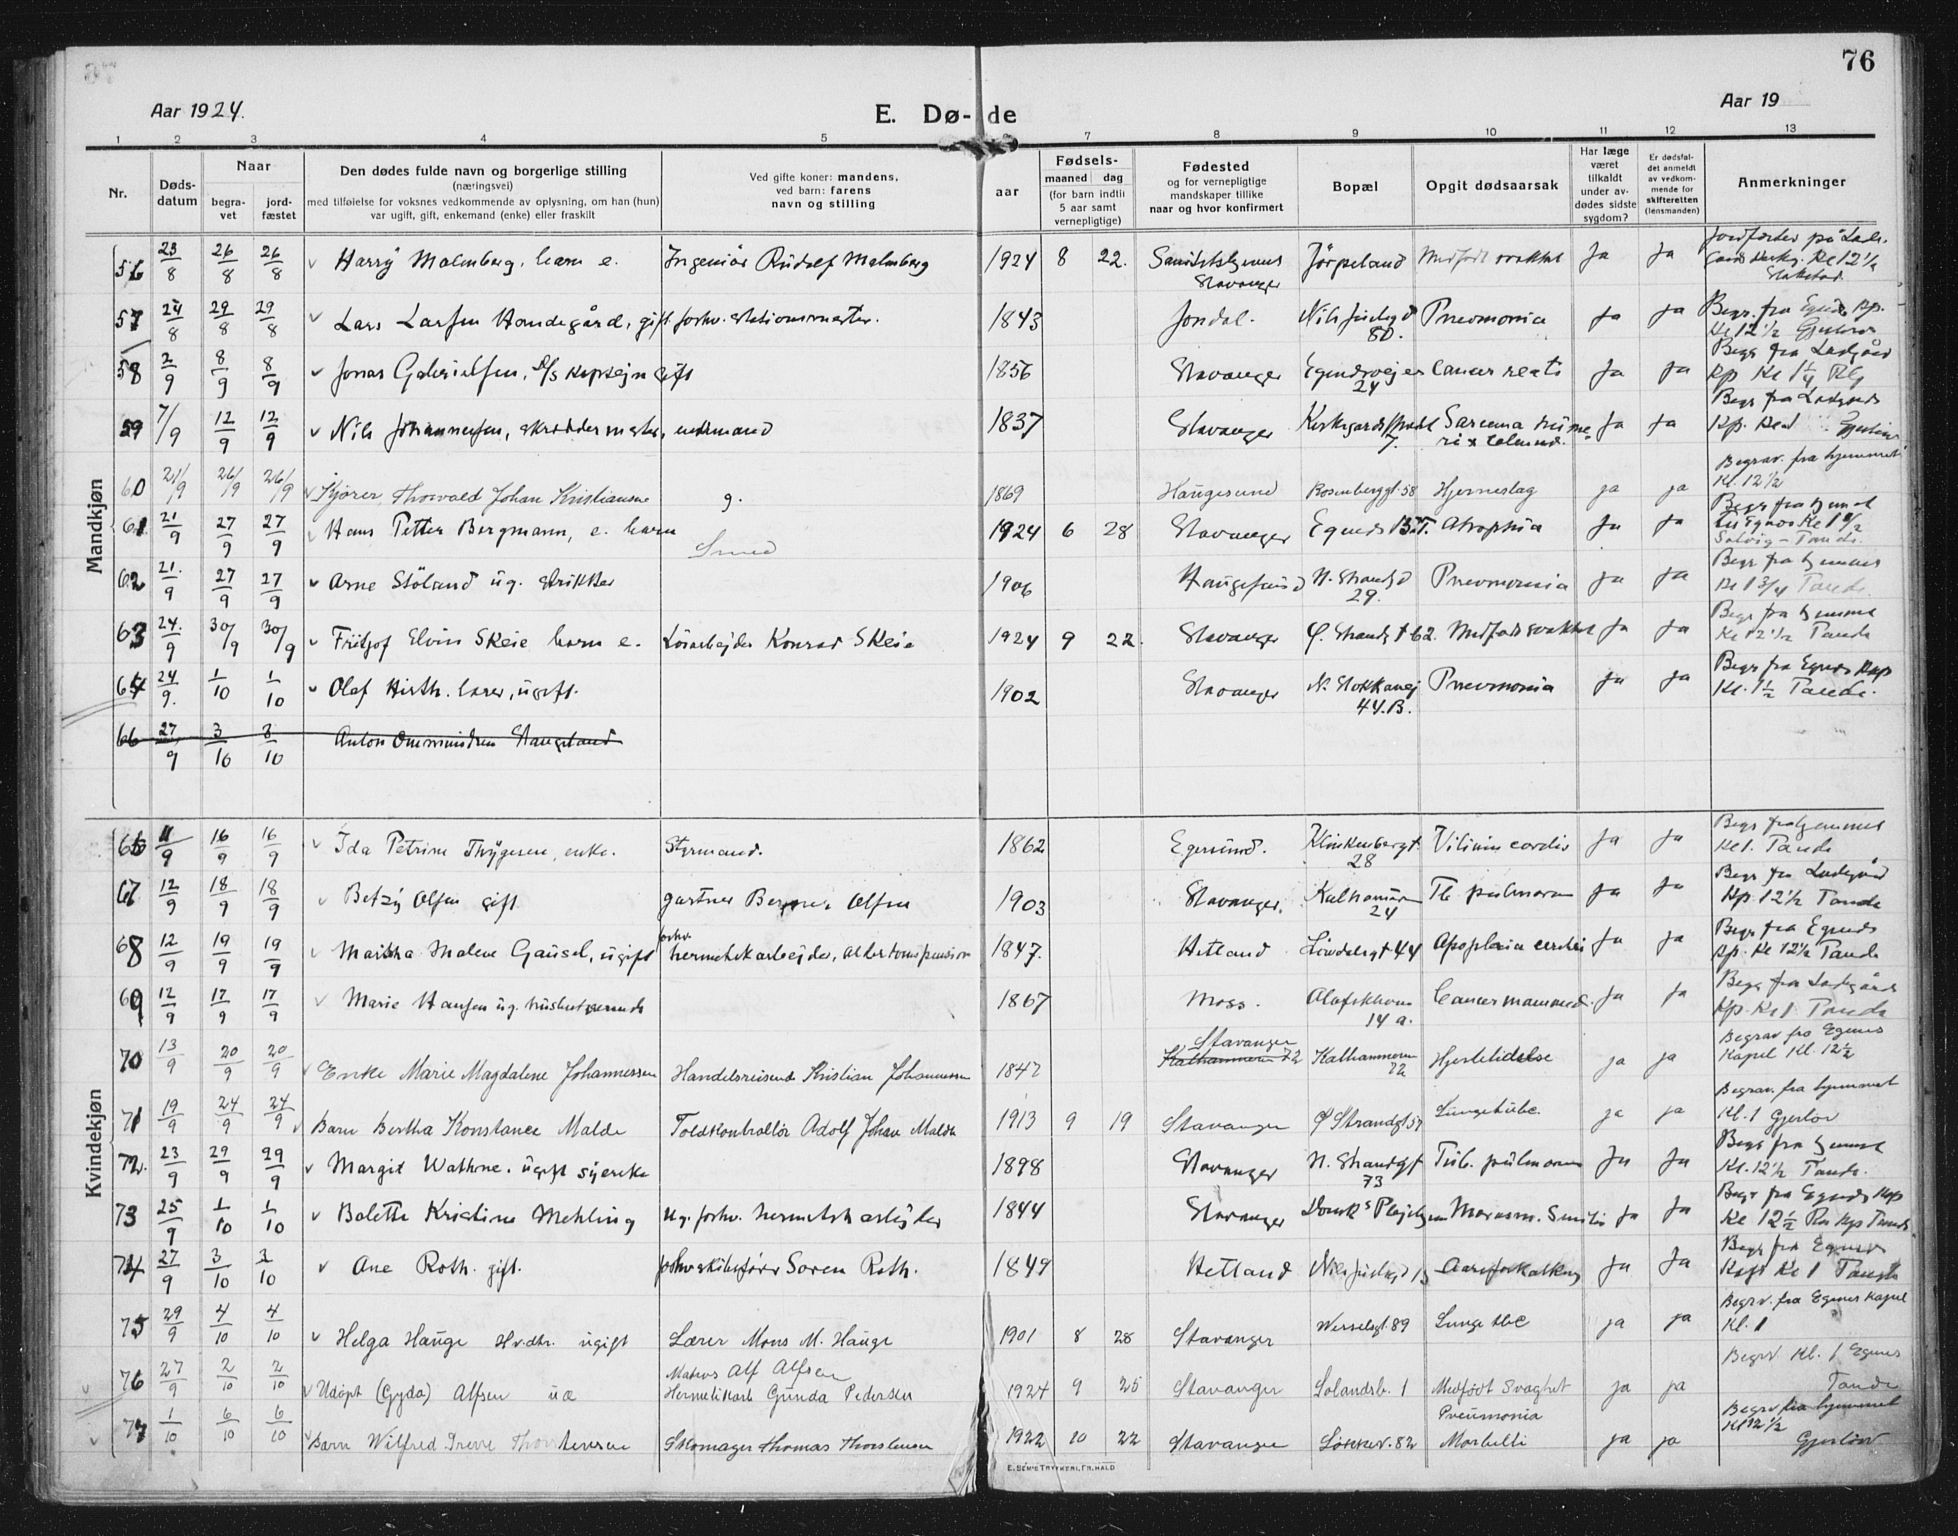 76
Aar 1924.
E. Dø-de
Aar 19
1 2 3 4 5 7 8 9 10 11 12 13
Nr.
Døds-datum
Naar
begra-vet
jord-fæstet
Den dødes fulde navn og borgerlige stilling
(næringsvei)
med tilføielse for voksnes vedkommende av oplysning, om han (hun)
var ugift, gift, enkemand (enke) eller fraskilt
Ved gifte koner: mandens,
ved barn: farens
navn og stilling
aar
Fødsels-
maaned dag
(for barn indtil
5 aar samt
vernepligtige)
Fødested
og for vernepligtige
mandskaper tillike
naar og hvor konfirmert
Bopæl
Opgit dødsaarsak
Har læge
været
tilkaldt
under av-
dødes sidste
sygdom?
Er dødsfal-
det anmeldt
av vedkom-
mende for
skifteretten
(lensmanden)
Anmerkninger
Mandkjøn
56 23/8 26/8 26/8 Harry Malmberg, barn e. Ingeniør Rudolf Malmberg 1924 8 22. Stavanger Jørpeland Medfødt svakhet Ja Ja
57 24/8 29/8 29/8 Lars Larsen Handegård, gift forhv. stationsmester. 1843 Jondal. 80. Pneumonia Ja Ja
58 2/9 8/9 8/9 Jonas Gabrielsen, D/S kaptejn gift 1856 Stavanger Egendsvejen 24 Cancer recti Ja Ja
59 7/9 12/9 12/9 Nils Johannesen, skræddermester, enkemand 1837 Stavanger 7. Sarcoma Ja Ja
60 21/9 26/9 26/9 Kjører, Thorvald Johan Kristiansen g. 1869 Haugesund Rosenberggt. 58 Hjerneslag ja ja Begrav. fra hjemmet Kl. 12 1/2
61 21/9 27/9 27/9 Hans Petter Bergmann, e. barn Smed 1924 6 28 Stavanger Atrophia Ja Ja
62 21./9 27/9 27/9 Arne Stöland ug. 1906 Haugesund N. Strandgd 29. Pneumonia Ja Ja Begr. fra hjemmet Kl 1 3/4 Tande
63 24./9 30/9 30/9 Fritjof Elvin Skeie barn e. Løsarbejder Konrad Skeie 1924 9 22. Stavanger Ø. Strandgt 62. Medfødt svakhet Ja Ja Begr fra hjemmet Kl 12 1/2 Tande
64 24/9. 1/10 1/10 Olaf Hirth. lærer, ugift. 1902 Stavanger N. Stokkavej 44.B. Pneumonia Ja Ja Begr fra Egends Kap Kl. 1 1/2 Tande.
66 27/9 3/10 3/10 Anton Ommundsen Haugeland
Kvindekjøn
66 11/9 16/9 16/9 Ida Petrine Thygesen, enke. Styrmand. 1862 Egersund. Klinkenberggt. 28 Vitium cordis Ja Ja Begr fra hjemmet Kl 1. Tande
67 12/9 18/9 18/9 Betzy Olsen gift gartner Olsen 1903 Stavanger. Kalhammeren 24 Tb. pulmonum Ja Ja Begr fra Ladegård Kp. 12 1/2 Tande
68 12/9 19/9 19/9 Martha Malene Gausel, ugift forhv. hermetikarbejder, alderdomspension 1847. Hetland Løvdalsgt 44 Apoplexia cerebri Ja Ja Begr fra Egends Kp. Kl 12 1/2 Tande
69 12/9 17/9 17/9 Marie Hansen ug. 1867 Moss. 14 a. Cancer mammae. Ja Ja Begr fra Ladegårds Kp. Kl 1 Tande
70 13/9 20/9 20/9 Enke Marie Magdalene Johannessen Handelsreisende Kristian Johannessen 1847 Kalhammeren 72 Stavanger Kalhammeren 72 Hjertelidelse ja ja Begrav fra Egenes Kapel Kl. 12 1/2
71 19/9 24/9 24/9 Barn Bertha Konstance Malde Toldkontrollør Adolf Johan Malde 1913 9 19 Stavanger Ø Strandgt 57 Lungetube. ja ja Begrav. fra hjemmet Kl. 1 Gjerløv
72. 23/9 29/9 29/9 Margit Wathne. ugift syerske 1898 Stavanger N. Strandgt 73 Tub. pulmonum Ja Ja Begr fra hjemmet Kl. 12 1/2 Tande.
73 25/9 1/10 1/10 Bolette Kristine Mehling ug. forhv. hermetikarbejder 1844 Stavanger Marasm. Senilis Ja Ja Begr fra Egends Kap Kl 12 1/2
74 27/9 3/10 3/10 Ane Roth. gift. forhv skibsfører Søren Roth. 1849 Hetland Aareforkalkng Ja Ja Begr fra Egenes Kap Kl 1 Tande
75 29/9 4/10 4/10 Helga Hauge Hv.dtr. ugift Lærer Mons M. Hauge 1901 8 28 Stavanger Wesselsgt. 89 Lunge tbc ja ja Begrv. fra Egenes Kapel Kl. 1
76 27/9 2/10 2/10 Udøpt (Gyda) Alfsen uæ Matros Alf Alfsen Hermetikarb Gunda Pedersen 1924 9 25 Stavanger Solandsb. 1 Medfødt Svaghet ja ja Begrv. Kl. 1 Egenes Tande
77 1/10 6/10 6/10 Barn Wilfred Thorstensen Skomager Thomas Thorstensen 1922 10 22 Stavanger Løkkev. 82 Pneumonia Morbilli ja ja Begrv fra hjemmet Kl 12 1/2 Gjerløv
E. SEM'S TRYKKERI, FR.HALD